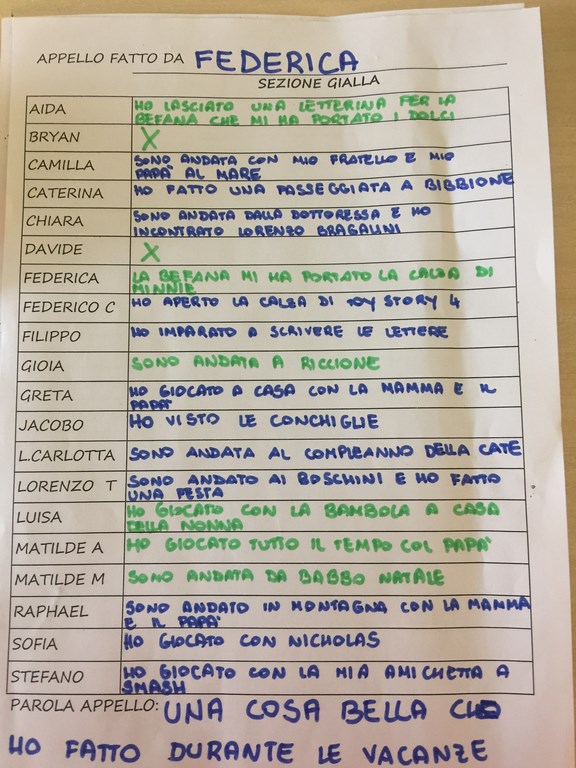 APPELLO FATTO DA FEDERICA
SEZIONE GIALLA
AIDA HO LASCIATO UNA LETTERINA PER LA
BEFANA CHE MI HA PORTATO I DOLCI
BRYAN X
CAMILLA SONO ANDATA CON MIO FRATELLO E MIO
PAPA' AL MARE
CATERINA HO FATTO UNA PASSEGGIATA A BIBBIONE
CHIARA SONO ANDATA DALLA DOTTORESSA E HO
INCONTRATO LORENZO BRAGALINI
DAVIDE X
FEDERICA LA BEFANA MI HA PORTATO LA CALZA DI
MINNIE
FEDERICO C HO APERTO LA CALZA DI TOY STORY 4
FILIPPO HO IMPARATO A SCRIVERE LE LETTERE
GIOIA SONO ANDATA A RICCIONE
GRETA HO GIOCATO A CASA CON LA MAMMA E IL
PAPA'
JACOBO HO VISTO LE CONCHIGLIE
L.CARLOTTA SONO ANDATA AL COMPLEANNO DELLA CATE
LORENZO T SONO ANDATO AI BOSCHINI E HO FATTO
UNA FESTA
LUISA HO GIOCATO CON LA BAMBOLA A CASA
DELLA NONNA
MATILDE A HO GIOCATO TUTTO IL TEMPO COL PAPA'
MATILDE M SONO ANDATA DA BABBO NATALE
RAPHAEL SONO ANDATO IN MONTAGNA CON LA MAMMA
E IL PAPA'
SOFIA HO GIOCATO CON NICHOLAS
STEFANO HO GIOCATO CON LA MIA AMICHETTA A
SMASH
PAROLA APPELLO: UNA COSA BELLA
HO FATTO DURANTE LE VACANZE